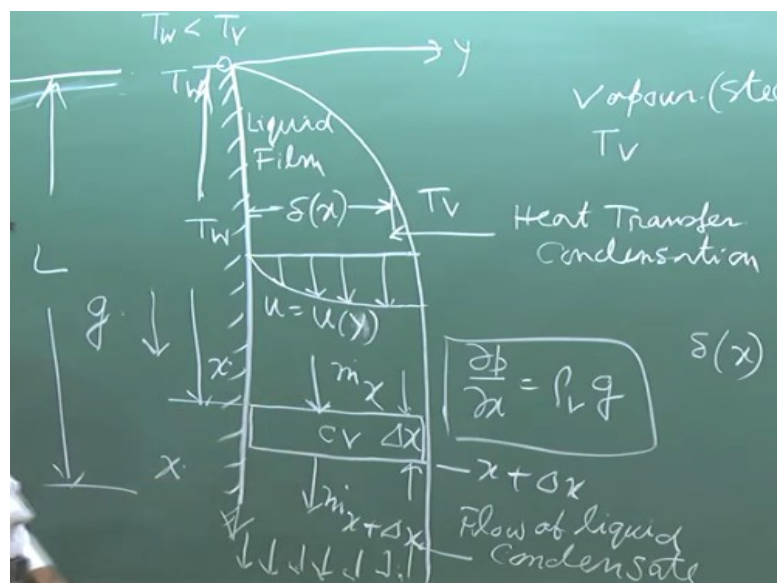 T_w < T_v
y
T_w
Vapour (Stea
T_v
Liquid
Film
δ(x)
T_v
T_w
Heat Transfer
Condensation
L
u = u(y)
g
δ(x)
x
ṁ_x
∂p/∂x = ρ_v g
CV Δx
x
x + Δx
ṁ_x+Δx
Flow of liquid
Condensate